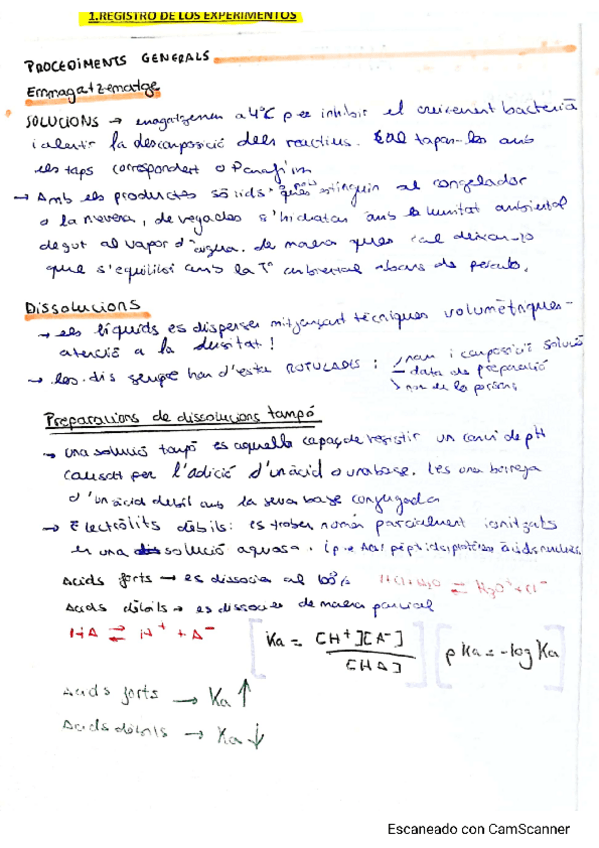 1.REGISTRO DE LOS EXPERIMENTOS
PROCEDIMENTS GENERALS
Emmagatzematge
SOLUCIONS → emagatzemen a 4°C per inhibir el creixement bacterià
i alentir la descomposició dels reactius. Cal tapar-les amb
els taps corresponent o Parafilm
→ Amb els productes sòlids que estinguin al congelador
o la nevera, de vegades s'hidraten amb la humitat ambiental
degut al vapor d'aigua. de manera que cal deixar-lo
que s'equilibri amb la Tª ambiental abans de pesar-lo.
Dissolucions
→ els líquids es dispersen mitjançant tècniques volumètriques -
atenció a la densitat!
→ les dis sempre han d'estar ROTULADES : nom i composició solució
data de preparació
nom de la persona
Preparacions de dissolucions tampó
→ una solució tampó es aquella capaç de resistir un canvi de pH
causat per l'adició d'un àcid o una base. És una barreja
d'un àcid dèbil amb la seva base conjugada
→ Electròlits dèbils: es troben només parcialment ionitzats
en una dissolució aquosa. (p.e Aa, pèptids, proteïnes, àcids nucleics.
Àcids forts → es dissocia al 100% HCl + H2O ⇌ H3O⁺ + Cl⁻
Àcids dèbils → es dissocien de manera parcial
HA ⇌ H⁺ + A⁻ Ka = [H⁺][A⁻] / [HA] pKa = -log Ka
Àcids forts → Ka ↑
Àcids dèbils → Ka ↓
Escaneado con CamScanner